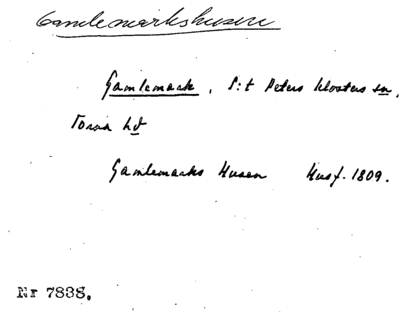 Gamlemarkshusen
Gamlemark, S:t Peters Klosters sn,
Torna hd
Gamlemarks Husen Husf. 1809.
Nr 7838.